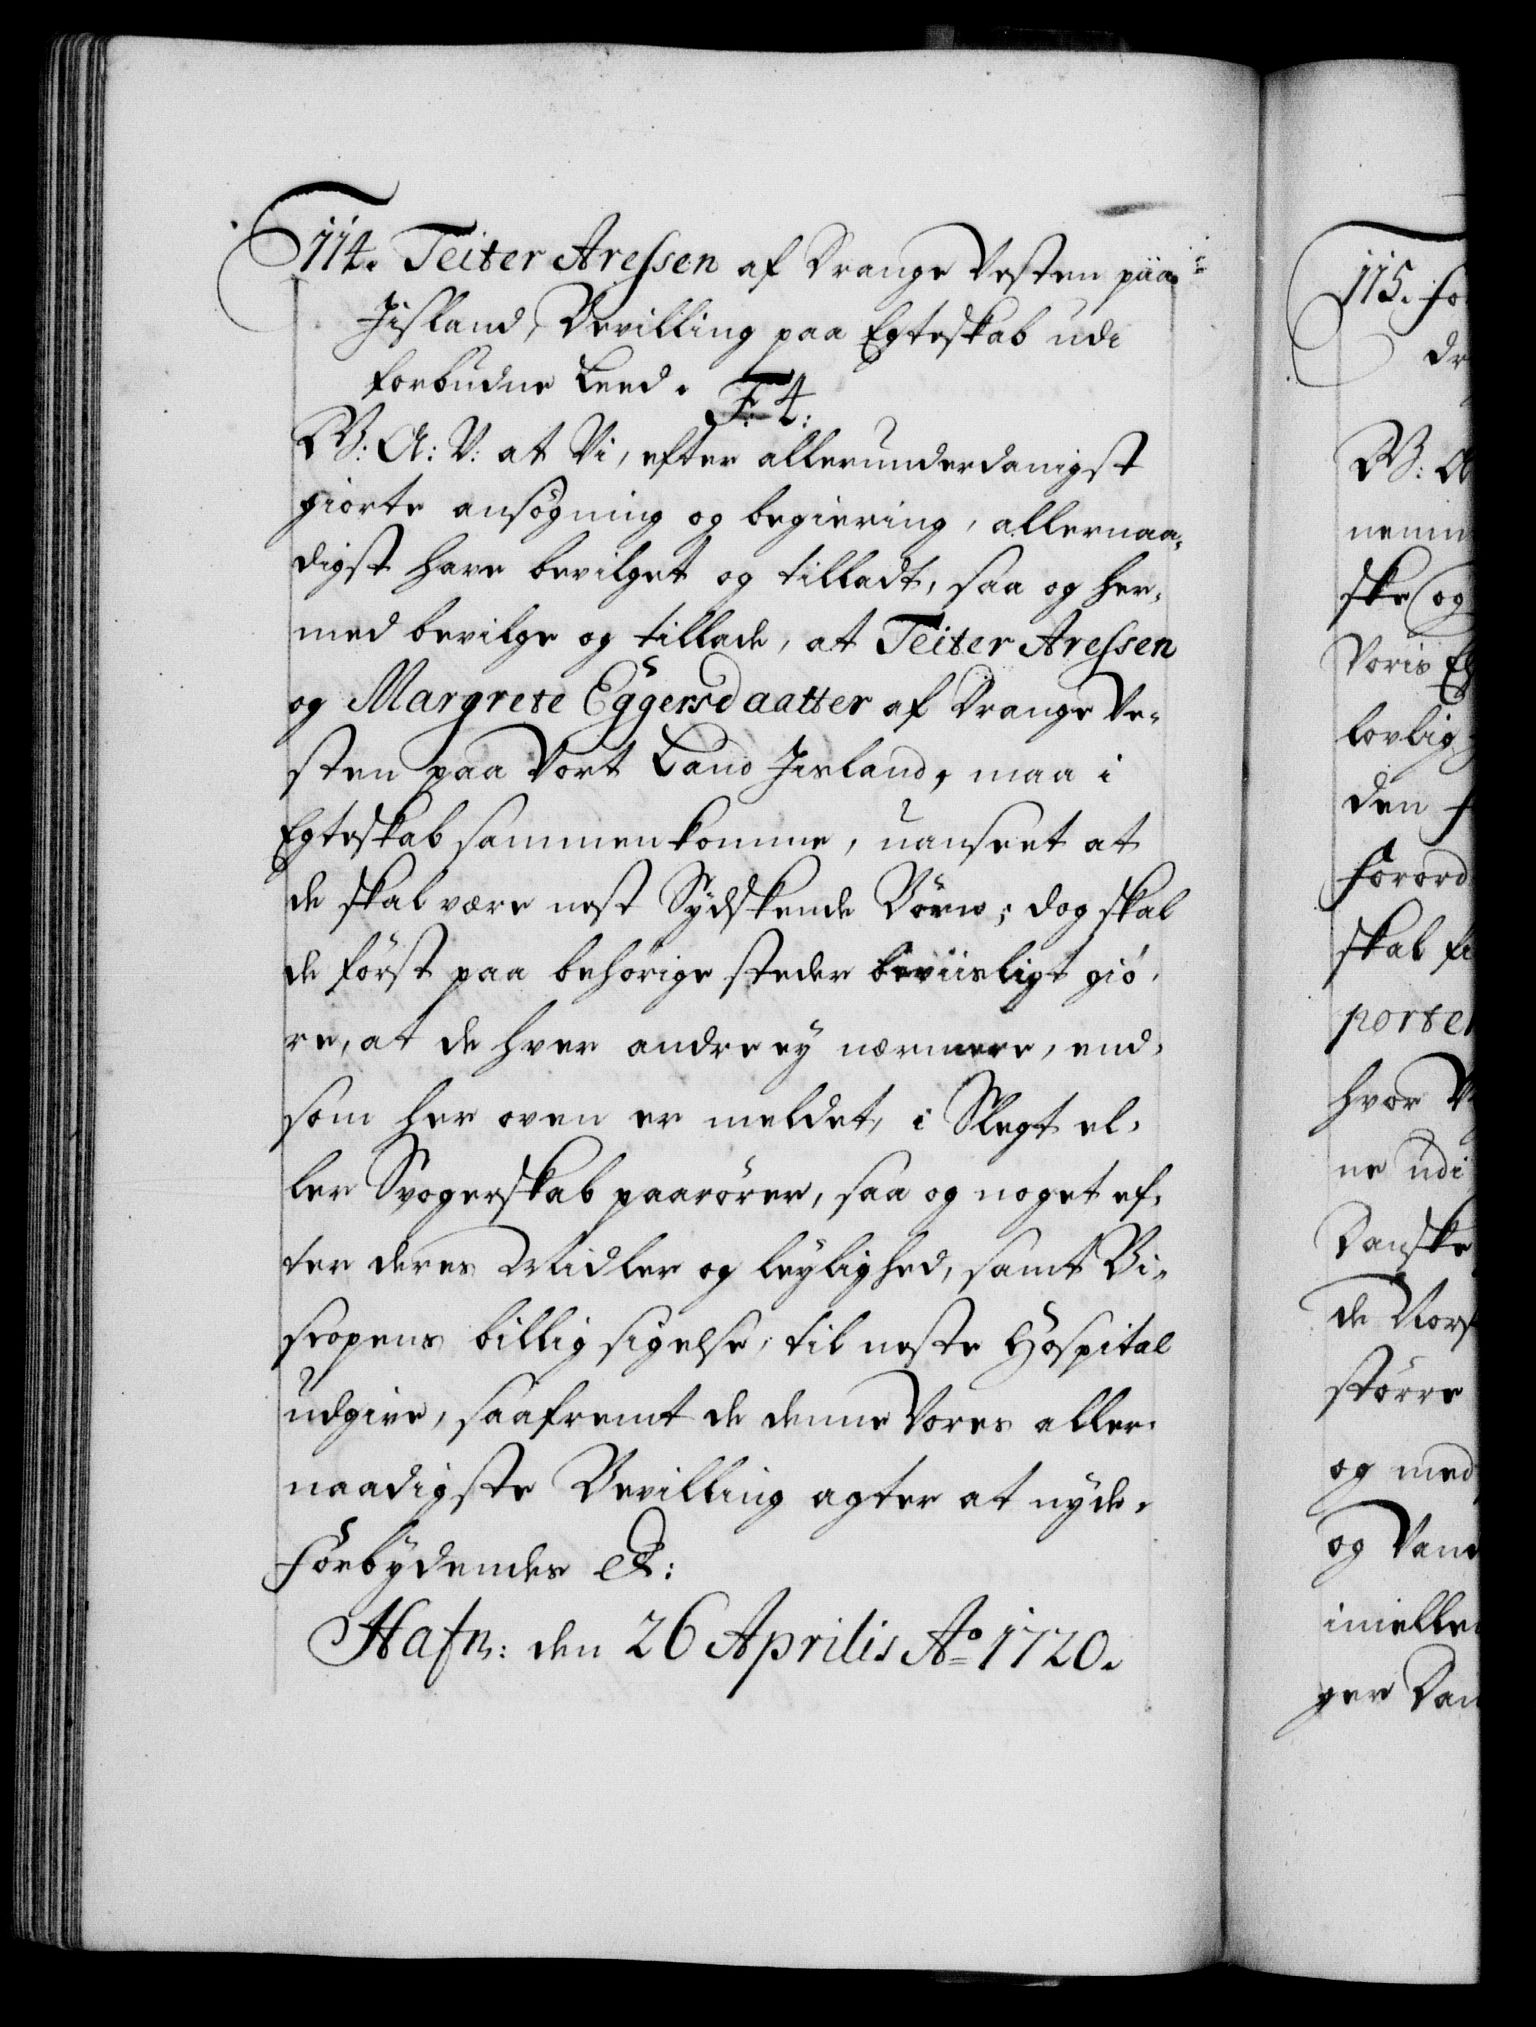 114. Teiter Aressen af Drange Vesten paa
Jisland, Bevilling paa Egteskab udi
forbudne Leed. F: 4:
W: A: V: at Vi, efter allerunderdanigst
giorte ansøgning og begiering, allernaa-
digst have bevilget og tilladt, saa og her-
med bevilge og tillade, at Teiter Aressen
og Margrete Eggersdaatter af Drange Ve-
sten paa Vort Land Jisland, maa i
Egteskab sammenkomme, uanseet at
de skal være nest Sydskende Børn; dog skal
de først paa behørige steder beviisligt giø-
re, at de hver andre ey nærmere, end-
som her oven er meldet, i Slegt el-
ler Svogerskab paarører, saa og noget ef-
ter deres Midler og leylighed, samt Bi-
scopens billig sigelse, til neste Hospital
udgive, saafremt de denne Vores aller-
naadigste Bevilling agter at nyde.
Forbydendes &:
Hafn: den 26 Aprilis Ao 1720.
115. fo
dr
W: A
nemm
ske og
Voris
lovlig
den
Forord
skal
porte
hvor
ne udi
Danske
de Nors
større
og med
og Van
imellem
ger Dan